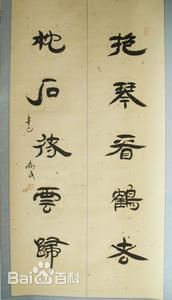 抱琴看鶴去
枕石待雲歸
辛巳
Bai百科